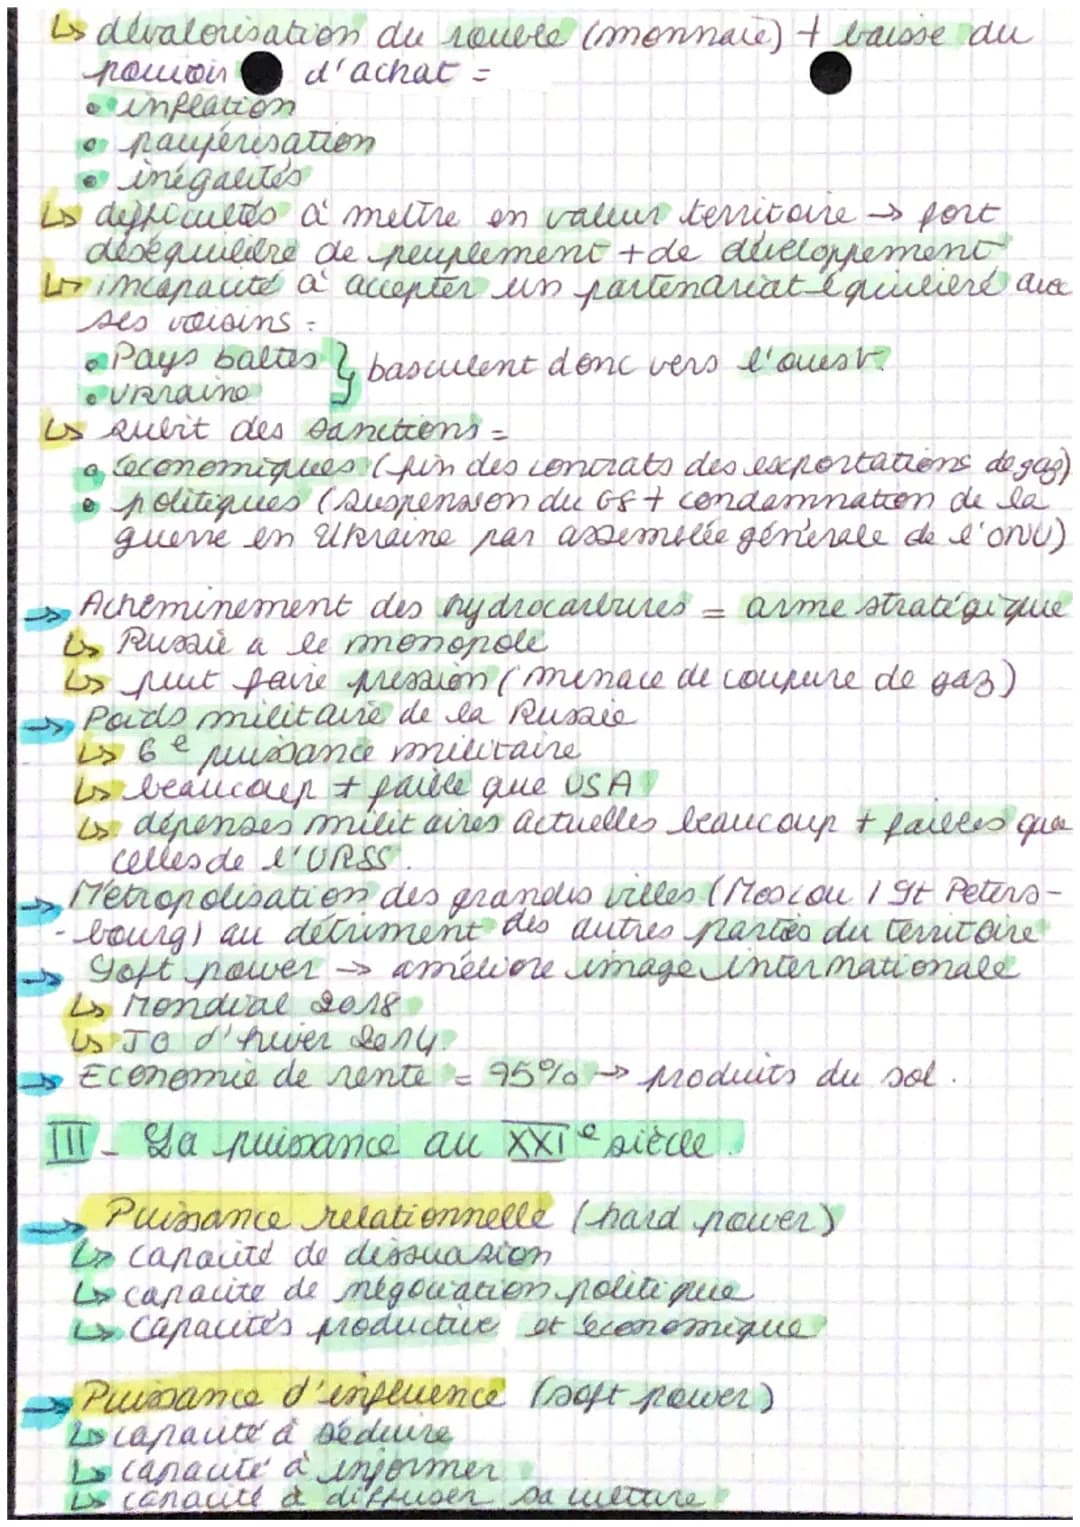 ↳ dévalorisation du rouble (monnaie) + baisse du
pouvoir d'achat =
• inflation
• paupérisation
• inégalités
↳ difficultés à mettre en valeur territoire → fort
déséquilibre de peuplement + de développement
↳ incapacité à accepter un partenariat équilibré avec
ses voisins :
• Pays baltes } basculent donc vers l'ouest.
• Ukraine
↳ subit des sanctions =
• économiques (fin des contrats des exportations de gaz)
• politiques (suspension du G8 + condamnation de la
guerre en Ukraine par assemblée générale de l'ONU)
→ Acheminement des hydrocarbures = arme stratégique
↳ Russie a le monopole
↳ peut faire pression (menace de coupure de gaz)
→ Poids militaire de la Russie
↳ 6e puissance militaire
↳ beaucoup + faible que USA
↳ dépenses militaires actuelles beaucoup + faibles que
celles de l'URSS.
→ Métropolisation des grandes villes (Moscou / St Peters-
-bourg) au détriment des autres parties du territoire
→ Soft power → améliore image internationale
↳ Mondial 2018
↳ JO d'hiver 2014.
→ Economie de rente = 95% → produits du sol.
III - La puissance au XXIe siècle.
→ Puissance relationnelle (hard power)
↳ capacité de dissuasion
↳ capacité de négociation politique
↳ capacités productive et économique
→ Puissance d'influence (soft power)
↳ capacité à séduire
↳ capacité à informer
↳ capacité à diffuser sa culture